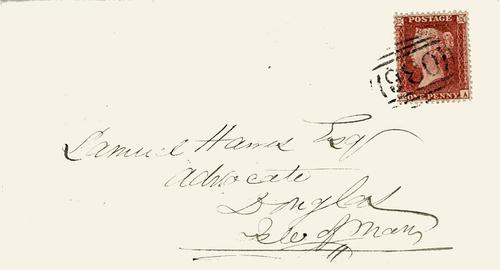 POSTAGE
ONE PENNY A
Samuel Harris Esqr
Advocate
Douglas
Isle of Man